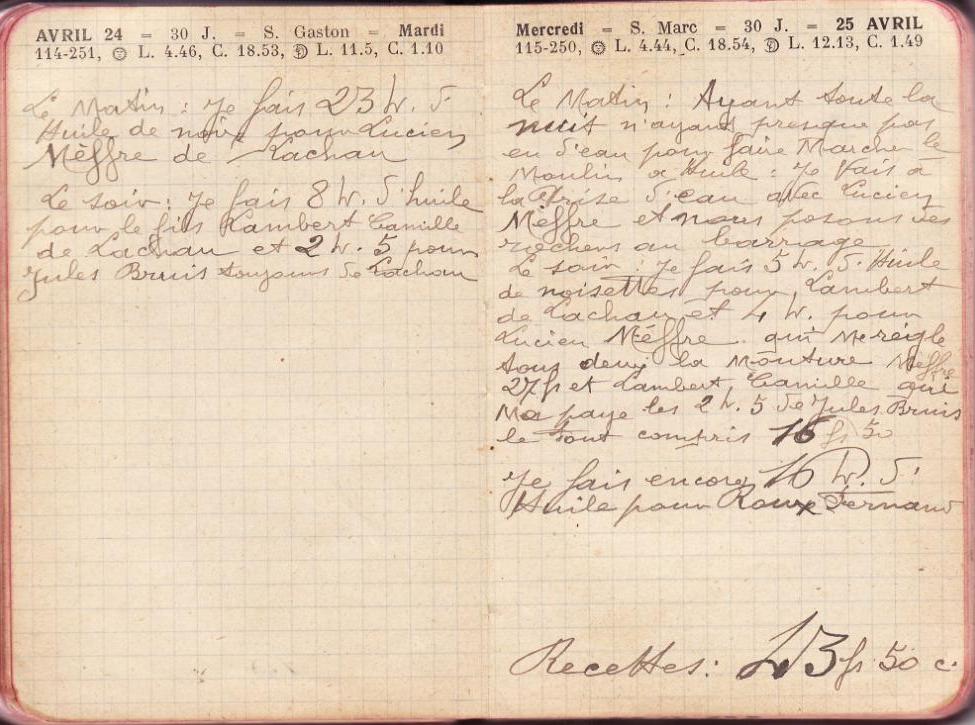 AVRIL 24 = 30 J. = S. Gaston = Mardi
114-251, L. 4.46, C. 18.53, L. 11.5, C. 1.10
Le Matin : Je fais 23 h. d'
Huile de noix pour Lucien
Mèffre de Lachau
Le soir : Je fais 8 h. d'huile
pour le fils Lambert Camille
de Lachau et 2 h. 5 pour
Jules Bruis toujours de Lachau
Mercredi = S. Marc = 30 J. = 25 AVRIL
115-250, L. 4.44, C. 18.54, L. 12.13, C. 1.49
Le Matin : Ayant toute la
nuit n'ayant presque pas
eu d'eau pour faire Marcher le
Moulin a Huile : Je vais à
la Prise d'eau avec Lucien
Mèffre et nous posons des
rochers au barrage
Le soir : Je fais 5 h. d'Huile
de noisettes pour Lambert
de Lachau et 4 h. pour
Lucien Méffre qui me reigle
tous deux la Mouture Meffre
27 fs et Lambert Camille qui
Ma paye les 2 h. 5 de Jules Bruis
le tout compris 16 fs 50
Je fais encore 16 h. d'
Huile pour Roux Fernand
Recettes : 43 fs 50 c.